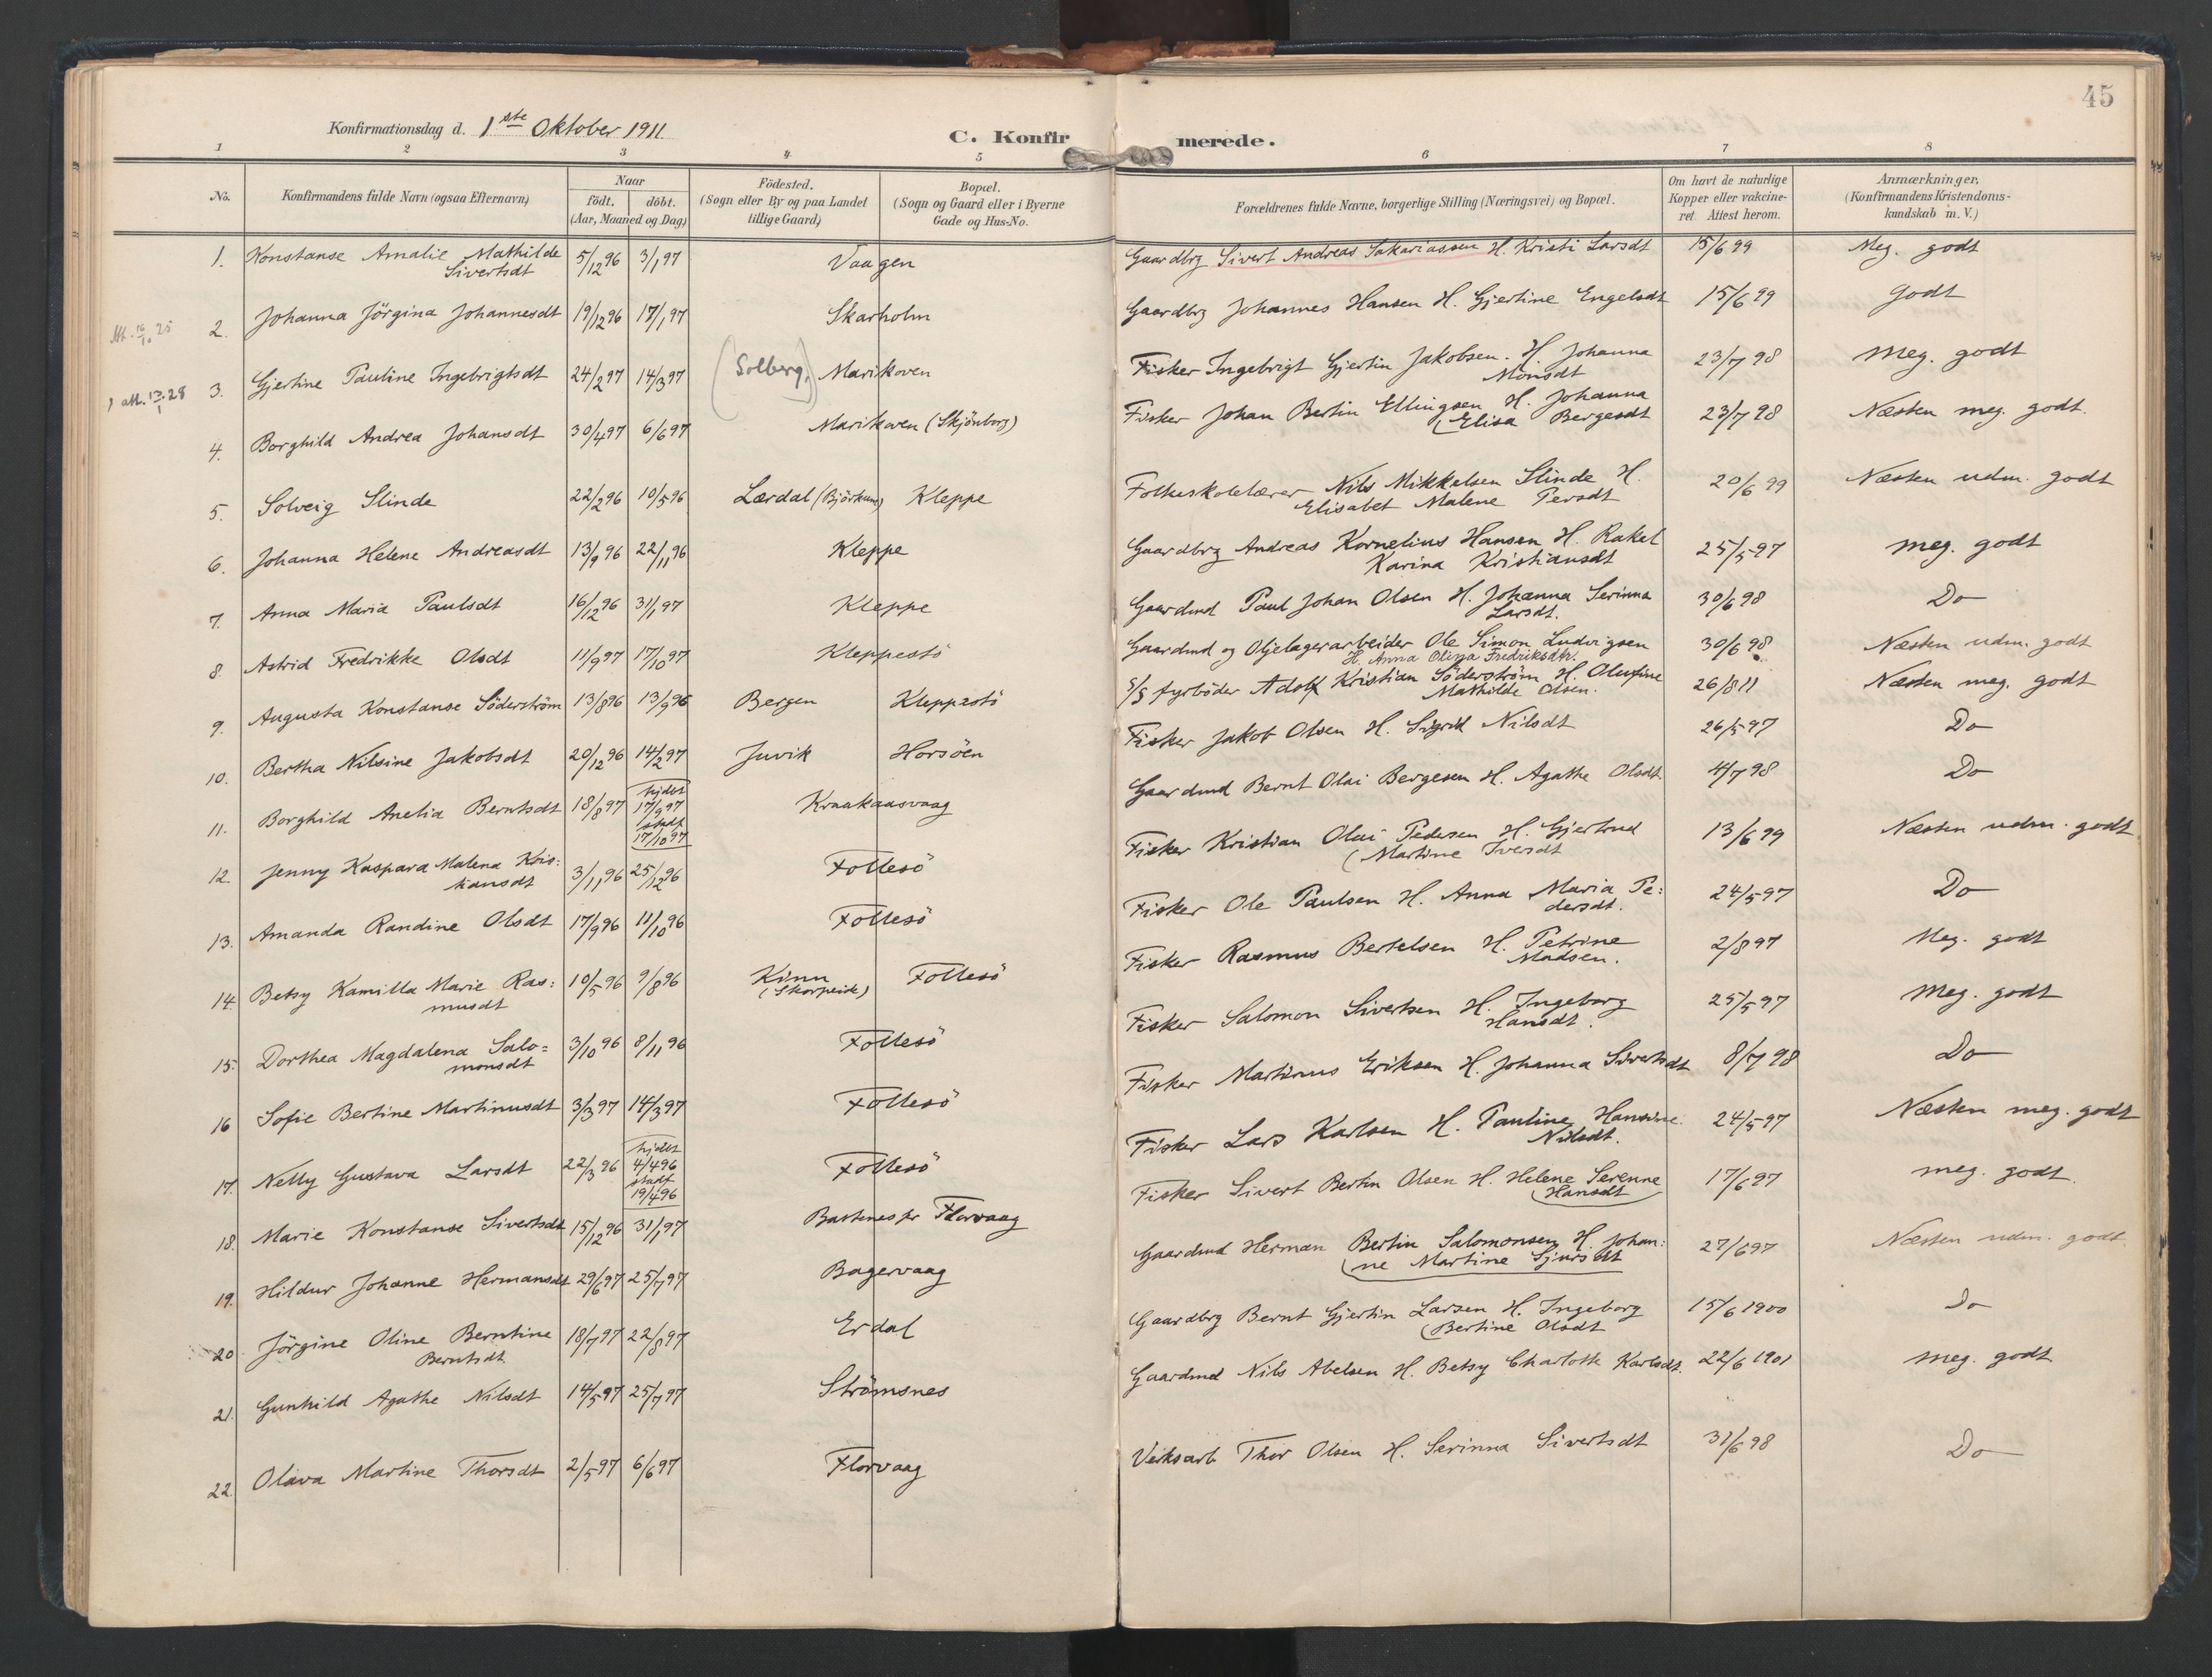 45
Konfirmationsdag d. 1ste Oktober 1911.
C. Konfirmerede.
1 2 3 4 5 6 7 8
No. Konfirmandens fulde Navn (ogsaa Efternavn) Naar födt. döbt. (Aar, Maaned og Dag) Födested. (Sogn eller By og paa Landet tillige Gaard) Bopæl. (Sogn og Gaard eller i Byerne Gade og Hus-No. Forældrenes fulde Navne, borgerlige Stilling (Næringsvei) og Bopæl. Om havt de naturlige Kopper eller vakcineret. Attest herom. Anmærkninger, (Konfirmandens Kristendomskundskab m. V.)
1. Konstanse Amalie Mathilde Sivertsdt 5/12 96 3/1 97 Vaagen Gaardbrg Sivert Andreas Sakariassen H. Kristi Larsdt 15/6 99 Meg. godt
2. Johanna Jörgina Johannesdt 19/12 96 17/1 97 Skarholm Gaardbrg Johannes Hansen H. Gjertine Engelsdt 15/6 99 Godt
3. Gjertine Pauline Ingebrigtsdt 24/2 97 14/3 97 (Solberg,) Marikoven Fisker Ingebrigt Gjertin Jakobsen. H. Johanna Monsdt 23/7 98 Meg. godt
4. Borghild Andrea Johansdt 30/4 97 6/6 97 Marikoven (Skjönborg) Fisker Johan Bertin Ellingsen H. Johanna (Elisa Bergesdt 23/7 98 Næsten meg. godt.
5. Solveig Slinde 22/2 96 10/5 96 Lærdal (Björkum) Kleppe Folkeskolelærer Nils Mikkelsen Slinde H. Elisabet Malene Persdt 20/6 99 Næsten udm. godt
6. Johanna Helene Andreasdt 13/9 96 22/11 96 Kleppe Gaardbrg Andreas Kornelius Hansen H. Rakel Karina Kristiansdt 25/5 97 Meg. godt
7. Anna Maria Paulsdt 16/12 96 31/1 97 Kleppe Gaardmd Paul Johan Olsen H. Johanna Serinna Larsdt. 30/6 98 Do
8. Astrid Fredrikke Olsdt 11/9 97 17/10 97 Kleppestö Gaardmd og Oljelagerarbeider Ole Simon Ludvigsen H. Anna Olina Fredriksdtr. 30/6 98 Næsten udm. godt
9. Augusta Konstanse Söderström 13/8 96 13/9 96 Bergen Kleppestö S/S fyrböder Adolf Kristian Söderström H. Olufine Mathilde Olsen. 26/8 11 Næsten meg. godt
10. Bertha Nilsine Jakobsdt 20/12 96 14/2 97 Juvik Horsöen Fisker Jakob Olsen H. Sigrid Nilsdt 26/5 97 Do
11. Borghild Anelia Berntsdt 18/8 97 hjdbt 17/9 97 stadf 17/10 97 Kraakaasvaag Gaardmd Bernt Olai Bergesen H. Agathe Olsdt. 4/7 98 Do
12. Jenny Kaspara Malena Kristiansdt 3/11 96 25/12 96 Follesö Fisker Kristian Olai Pedersen H. Gjertrud (Martine Iversdt 13/6 99 Næsten udm. godt
13. Amanda Randine Olsdt 17/9 96 11/10 96 Follesö Fisker Ole Paulsen H. Anna Maria Pe: dersdt. 24/5 97 Do
14. Betsy Kamilla Marie Ras: musdt 10/5 96 9/8 96 Kinn (Skorpeide) Follesö Fisker Rasmus Bertelsen H. Petrine Madsen. 2/8 97 Meg. godt
15. Dorthea Magdalena Salo= monsdt 3/10 96 8/11 96 Follesö Fisker Salomon Sivertsen H. Ingeborg Hansdt. 25/5 97 Meg. godt
16 Sofie Bertine Martinusdt 3/3 97 14/3 97 Follesö Fisker Martinus Eriksen H. Johanna Sivertsdt 8/7 98 Do
17. Nelly Gustava Larsdt 22/3 96 hjdbt 4/4 96 stadf 19/4 96 Follesö Fisker Lars Karlsen H. Pauline Hansine Nilsdt. 24/5 97 Næsten meg. godt
18. Marie Konstanse Sivertsdt 15/12 96 31/1 97 Bastenes pr Florvaag Fisker Sivert Bertin Olsen H. Helene Serenne (Hansdt 17/6 97 meg. godt.
19. Hildur Johanne Hermansdt 29/6 97 25/7 97 Bagervaag Gaardmd Herman Bertin Salomonsen H. Johan: (ne Martine Sjursdt 27/6 97 Næsten udm. godt
20 Jörgine Oline Berntine Berntsdt. 18/7 97 22/8 97 Erdal Gaardbrg Bernt Gjertin Larsen H. Ingeborg (Bertine Olsdt 15/6 1900 Do
21. Gunhild Agathe Nilsdt 14/5 97 25/7 97 Strömsnes Gaardmd Nils Abelsen H. Betsy Charlotte Karlsdt. 22/6 1901 Meg. godt
22. Olava Martine Thorsdt 2/5 97 6/6 97 Florvaag Verksarb Thor Olsen H. Serinna Sivertsdt 31/6 98 Do